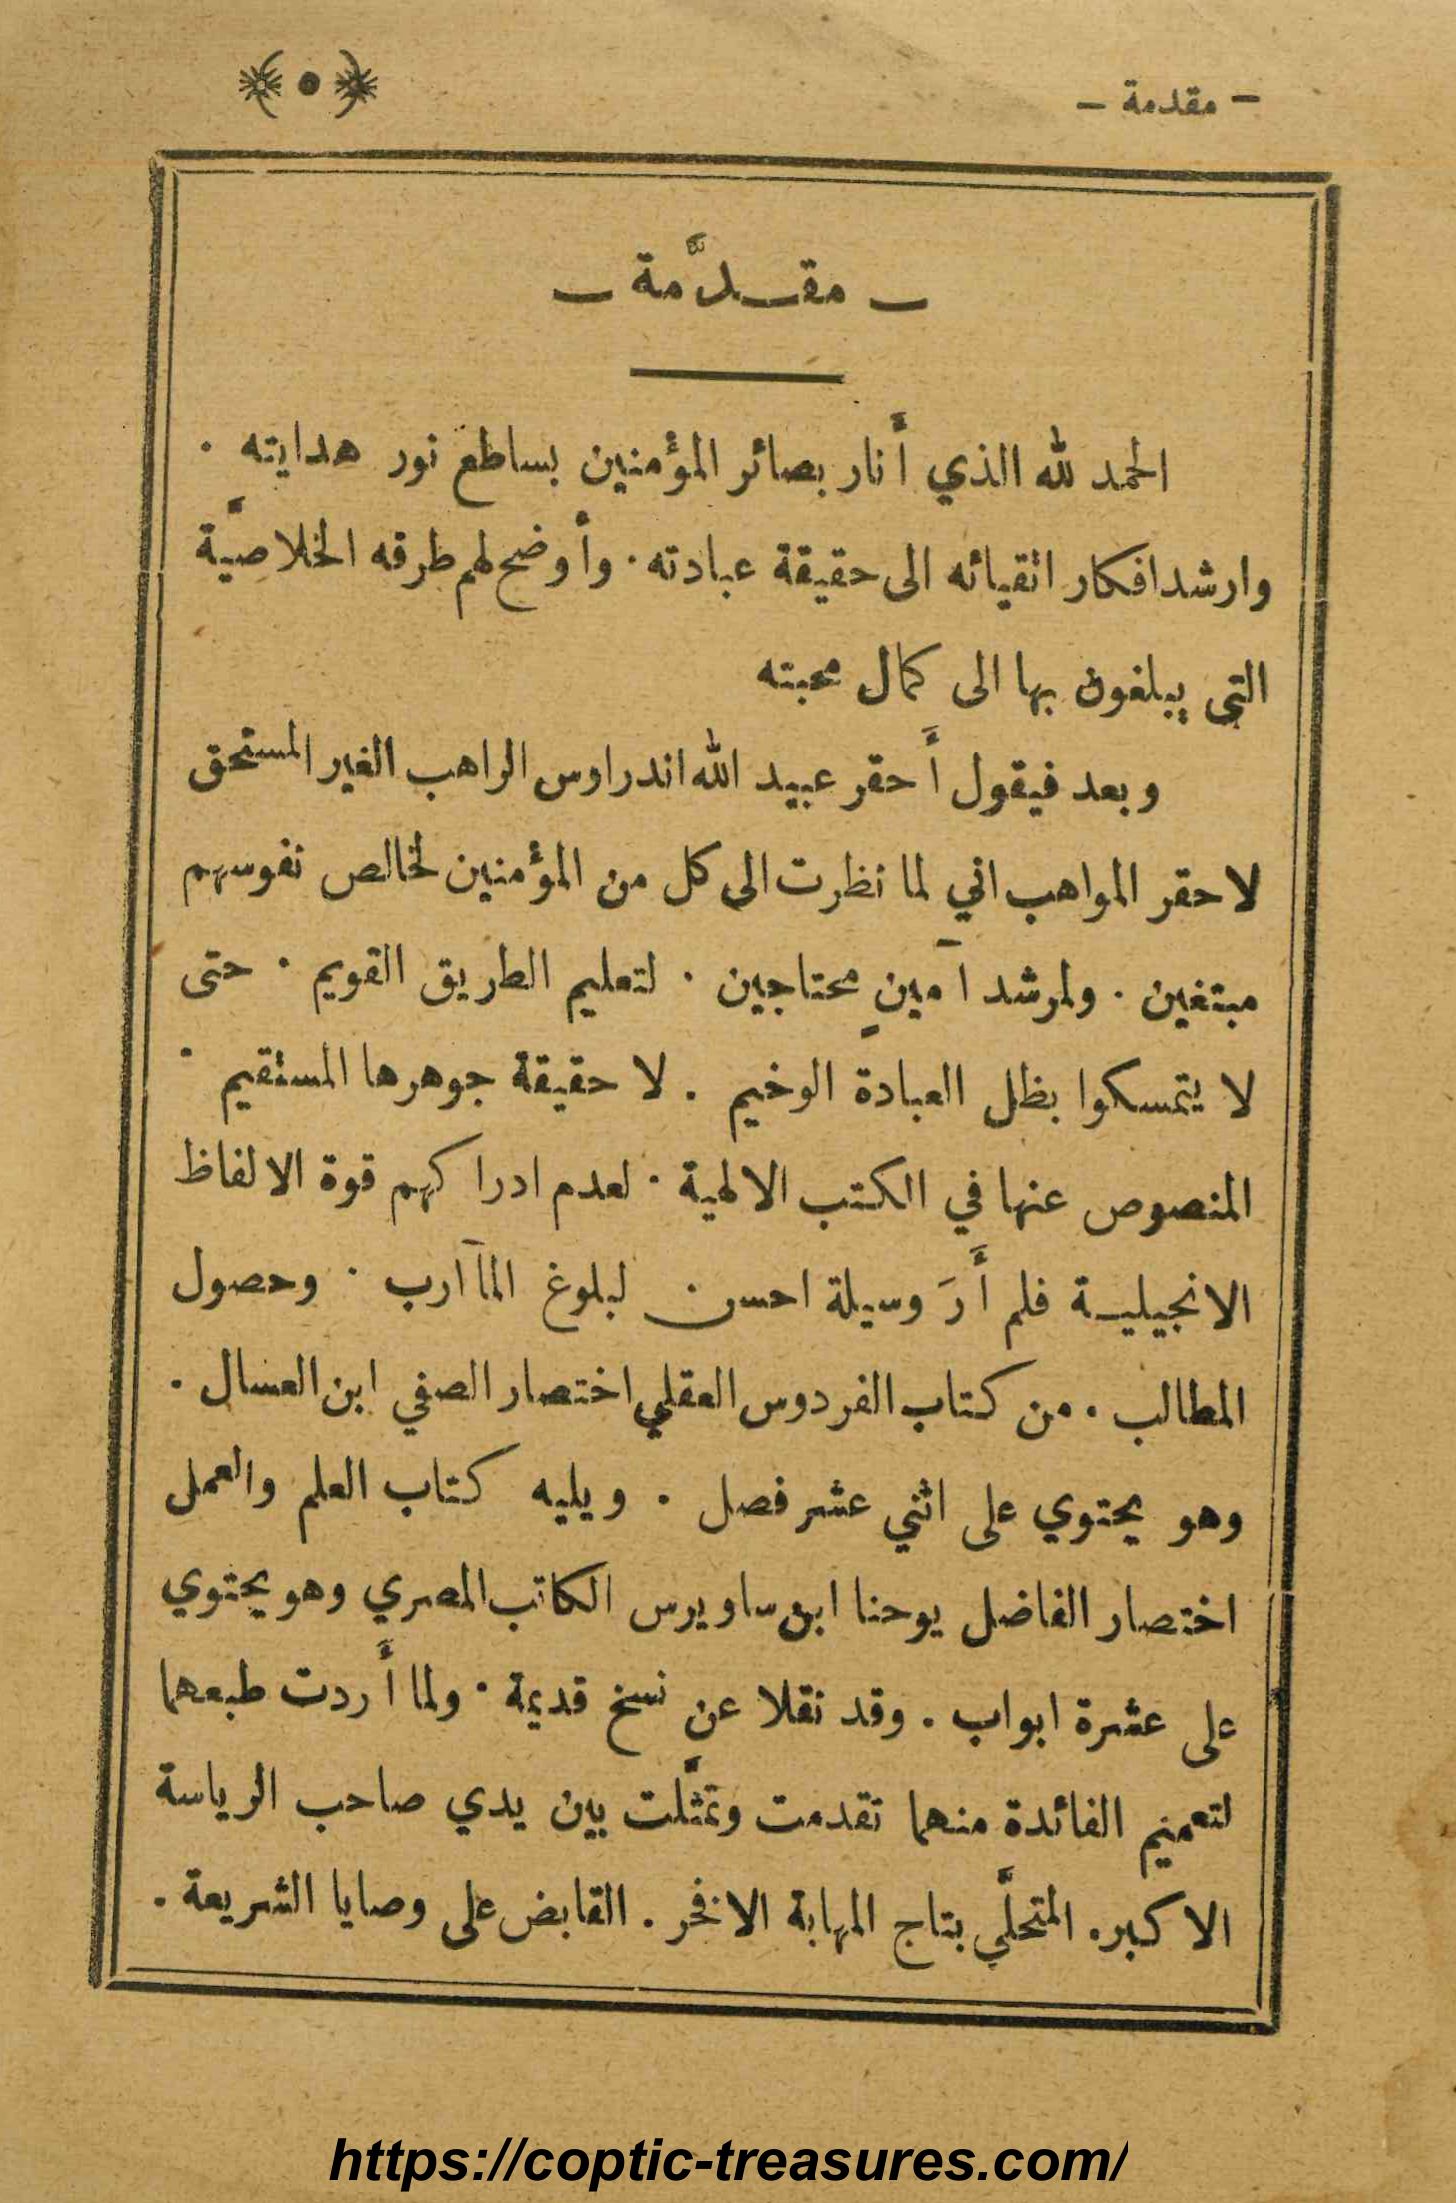 - مقدمة -
٥
- مقـدَّمة -
الحمد لله الذي أَنار بصائر المؤمنين بساطع نور هدايته ٠
وارشد افكار اتقيائه الى حقيقة عبادته ٠ وأَوضح لهم طرقه الخلاصيَّة
التي يبلغون بها الى كمال محبته
وبعد فيقول أَحقر عبيد الله اندراوس الراهب الغير المستحق
لاحقر المواهب اني لما نظرت الى كل من المؤمنين لخالص نفوسهم
مبتغين ٠ ولمرشد آمينٍ محتاجين ٠ لتعليم الطريق القويم ٠ حتى
لا يتمسكوا بظل العبادة الوخيم ٠ لا حقيقة جوهرها المستقيم ٠
المنصوص عنها في الكتب الالهية ٠ لعدم ادراكهم قوة الالفاظ
الانجيليـة فلم أَرَ وسيلة احسن لبلوغ المآارب ٠ وحصول
المطالب ٠ من كتاب الفردوس العقلي اختصار الصفي ابن العسال ٠
وهو يحتوي على اثني عشر فصل ٠ ويليه كتاب العلم والعمل
اختصار الفاضل يوحنا ابن ساويرس الكاتب المصري وهو يحتوي
على عشرة ابواب ٠ وقد نقلا عن نسخ قديمة ٠ ولما أَردت طبعهما
لتعميم الفائدة منهما تقدمت وتمثَّلت بين يدي صاحب الرياسة
الاكبر ٠ المتحلَّي بتاج المهابة الافخر ٠ القابض على وصايا الشريعة ٠
https://coptic-treasures.com/